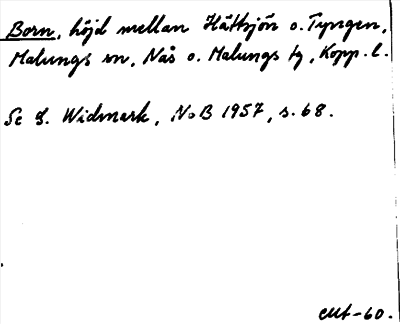 Born, höjd mellan Håttsjön o. Tyngen,
Malungs sn, Nås o. Malungs tg, Kopp. l.
Se G. Widmark, NoB 1957, s. 68.
-60.